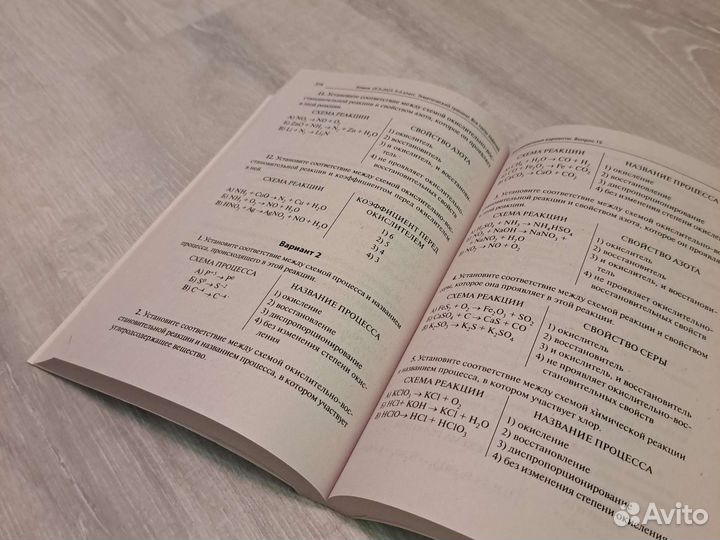 Химия. ОГЭ-2023. 9-й класс. Тематический тренинг. Все типы заданий
11. Установите соответствие между схемой окислительно-вос-
становительной реакции и свойством азота, которое он проявляет
в этой реакции.
СХЕМА РЕАКЦИИ
А) NO₂ → NO + O₂
Б) ZnO + NH₃ → N₂ + Zn + H₂O
В) Li + N₂ → Li₃N
СВОЙСТВО АЗОТА
1) окислитель
2) восстановитель
3) и окислитель, и восстанови-
тель
4) не проявляет окислительно-вос-
становительных свойств
12. Установите соответствие между схемой окислительно-вос-
становительной реакции и коэффициентом перед окислителем
в ней.
СХЕМА РЕАКЦИИ
А) NH₃ + CuO → N₂ + Cu + H₂O
Б) NH₃ + O₂ → NO + H₂O
В) HNO₃ + Ag → AgNO₃ + NO + H₂O
КОЭФФИЦИЕНТ ПЕРЕД
ОКИСЛИТЕЛЕМ
1) 6
2) 5
3) 4
4) 3
Вариант 2
1. Установите соответствие между схемой процесса и названием
процесса, происходящего в этой реакции.
СХЕМА ПРОЦЕССА
А) P⁻³ → P⁰
Б) S⁰ → S⁻²
В) C⁻⁴ → C⁻⁴
НАЗВАНИЕ ПРОЦЕССА
1) окисление
2) восстановление
3) диспропорционирование
4) без изменения степени окис-
ления
2. Установите соответствие между схемой окислительно-вос-
становительной реакции и названием процесса, в котором участвует
углеродсодержащее вещество.
варианты. Вопрос 15
СХЕМА РЕАКЦИИ
А) CH₄ + H₂O → CO + H₂
Б) CO + Fe₂O₃ → Fe + CO₂
В) CaCO₃ → CaO + CO₂
НАЗВАНИЕ ПРОЦЕССА
1) окисление
2) восстановление
3) диспропорционирование
4) без изменения степени окисления
3. Установите соответствие между схемой окислительно-вос-
становительной реакции и свойством азота, которое он проявляет
СХЕМА РЕАКЦИИ
А) H₂SO₄ + NH₃ → NH₄HSO₄
Б) NO₂ + NaOH → NaNO₃ +
+ NaNO₂ + H₂O
В) NO₂ → NO + O₂
СВОЙСТВО АЗОТА
1) окислитель
2) восстановитель
3) и окислитель, и восстанови-
тель
4) не проявляет окислительно-вос-
становительных свойств
4. Установите соответствие между схемой реакции и свойством
серы, которое она проявляет в этой реакции.
СХЕМА РЕАКЦИИ
А) FeS₂ + O₂ → Fe₂O₃ + SO₂
Б) CaSO₄ + C → CaS + CO
В) K₂SO₃ → K₂S + K₂SO₄
СВОЙСТВО СЕРЫ
1) окислитель
2) восстановитель
3) и окислитель, и восстановитель
4) не проявляет окислительно-вос-
становительных свойств
5. Установите соответствие между схемой химической реакции
и названием процесса, в котором участвует хлор.
СХЕМА РЕАКЦИИ
А) KClO₃ → KCl + O₂
Б) HCl + KOH → KCl + H₂O
В) HClO → HCl + HClO₃
НАЗВАНИЕ ПРОЦЕССА
1) окисление
2) восстановление
3) диспропорционирование
4) без изменения степени окисления
Avito